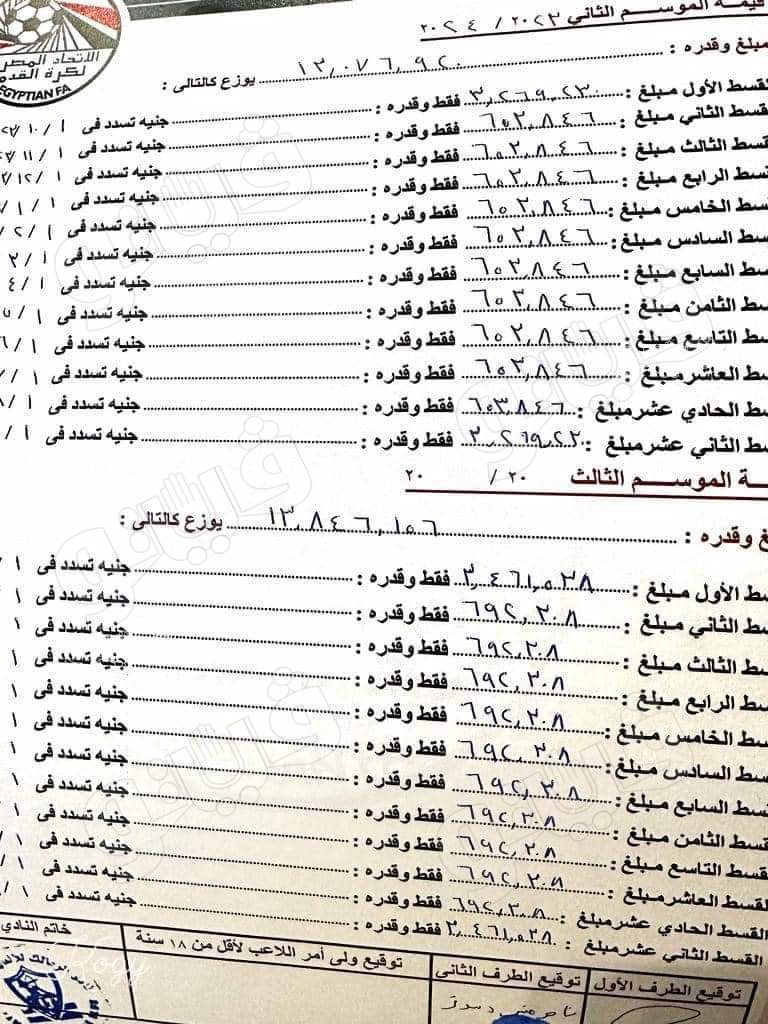 قيمة الموسم الثاني ٢٠٢٣ / ٢٠٢٤
الاتحاد المصر
لكرة القدم
EGYPTIAN FA
مبلغ وقدره : ١٣,٠٧٦,٩٢٠ يوزع كالتالى :
قسط الأول مبلغ : ٣,٢٦٩,٢٣٠ فقط وقدره : جنيه تسدد فى ١ / ١٠ /
قسط الثاني مبلغ : ٦٥٣,٨٤٦ فقط وقدره : جنيه تسدد فى ١ / ١١ /
سط الثالث مبلغ : ٦٥٣,٨٤٦ فقط وقدره : جنيه تسدد فى ١ / ١٢ /
سط الرابع مبلغ : ٦٥٣,٨٤٦ فقط وقدره : جنيه تسدد فى ١ / ١ /
سط الخامس مبلغ : ٦٥٣,٨٤٦ فقط وقدره : جنيه تسدد فى ١ / ٢ /
سط السادس مبلغ : ٦٥٣,٨٤٦ فقط وقدره : جنيه تسدد فى ١ / ٣
سط السابع مبلغ : ٦٥٣,٨٤٦ فقط وقدره : جنيه تسدد فى ١ / ٤
سط الثامن مبلغ : ٦٥٣,٨٤٦ فقط وقدره : جنيه تسدد فى ١ / ٥
سط التاسع مبلغ : ٦٥٣,٨٤٦ فقط وقدره : جنيه تسدد فى ١ / ٦
سط العاشر مبلغ : ٦٥٣,٨٤٦ فقط وقدره : جنيه تسدد فى ١ / ٧
سط الحادي عشر مبلغ : ٦٥٣,٨٤٦ فقط وقدره : جنيه تسدد فى ١ / ٨
سط الثاني عشر مبلغ : ٣,٢٦٩,٢٣٠ فقط وقدره : جنيه تسدد فى ١ /
ة الموسم الثالث ٢٠ / ٢٠
غ وقدره : ١٣,٨٤٦,١٥٦ يوزع كالتالى :
سط الأول مبلغ : ٣,٤٦١,٥٣٨ فقط وقدره : جنيه تسدد فى ١ /
سط الثاني مبلغ : ٦٩٢,٣٠٨ فقط وقدره : جنيه تسدد فى ١
سط الثالث مبلغ : ٦٩٢,٣٠٨ فقط وقدره : جنيه تسدد فى ١
سط الرابع مبلغ : ٦٩٢,٣٠٨ فقط وقدره : جنيه تسدد فى ١
سط الخامس مبلغ : ٦٩٢,٣٠٨ فقط وقدره : جنيه تسدد فى ١
سط السادس مبلغ : ٦٩٢,٣٠٨ فقط وقدره : جنيه تسدد فى ١
قسط السابع مبلغ : ٦٩٢,٣٠٨ فقط وقدره : جنيه تسدد فى ١
قسط الثامن مبلغ : ٦٩٢,٣٠٨ فقط وقدره : جنيه تسدد فى ١
لقسط التاسع مبلغ : ٦٩٢,٣٠٨ فقط وقدره : جنيه تسدد فى ١
لقسط العاشر مبلغ : ٦٩٢,٣٠٨ فقط وقدره : جنيه تسدد فى ١ /
القسط الحادي عشر مبلغ : ٦٩٢,٣٠٨ فقط وقدره : جنيه تسدد فى ١ /
القسط الثاني عشر مبلغ : ٣,٤٦١,٥٣٨ فقط وقدره : جنيه تسدد فى ١ /
توقيع الطرف الأول
توقيع الطرف الثانى
توقيع ولى أمر اللاعب لأقل من ١٨ سنة
خاتم النادي